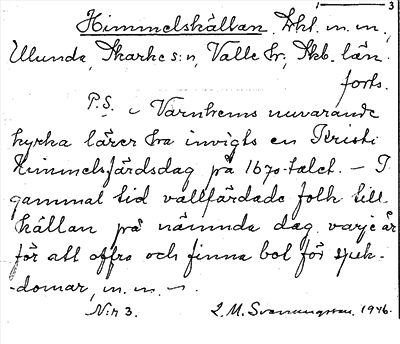 1 3
Himmelskällan. Dkl. m. m.,
Ulunda, Skarke s:n, Valle hr; Skb. län.
forts.
P.S. I Varnhems nuvarande
kyrka lärer ha invigts en Kristi
himmelsfärdsdag på 1670-talet. – I
gammal tid vallfärdade folk till
källan på nämnda dag varje år
för att offra och finna bot för sjuk-
-domar, m. m. –
N:r 3. L. M. Svanungsson. 1946.